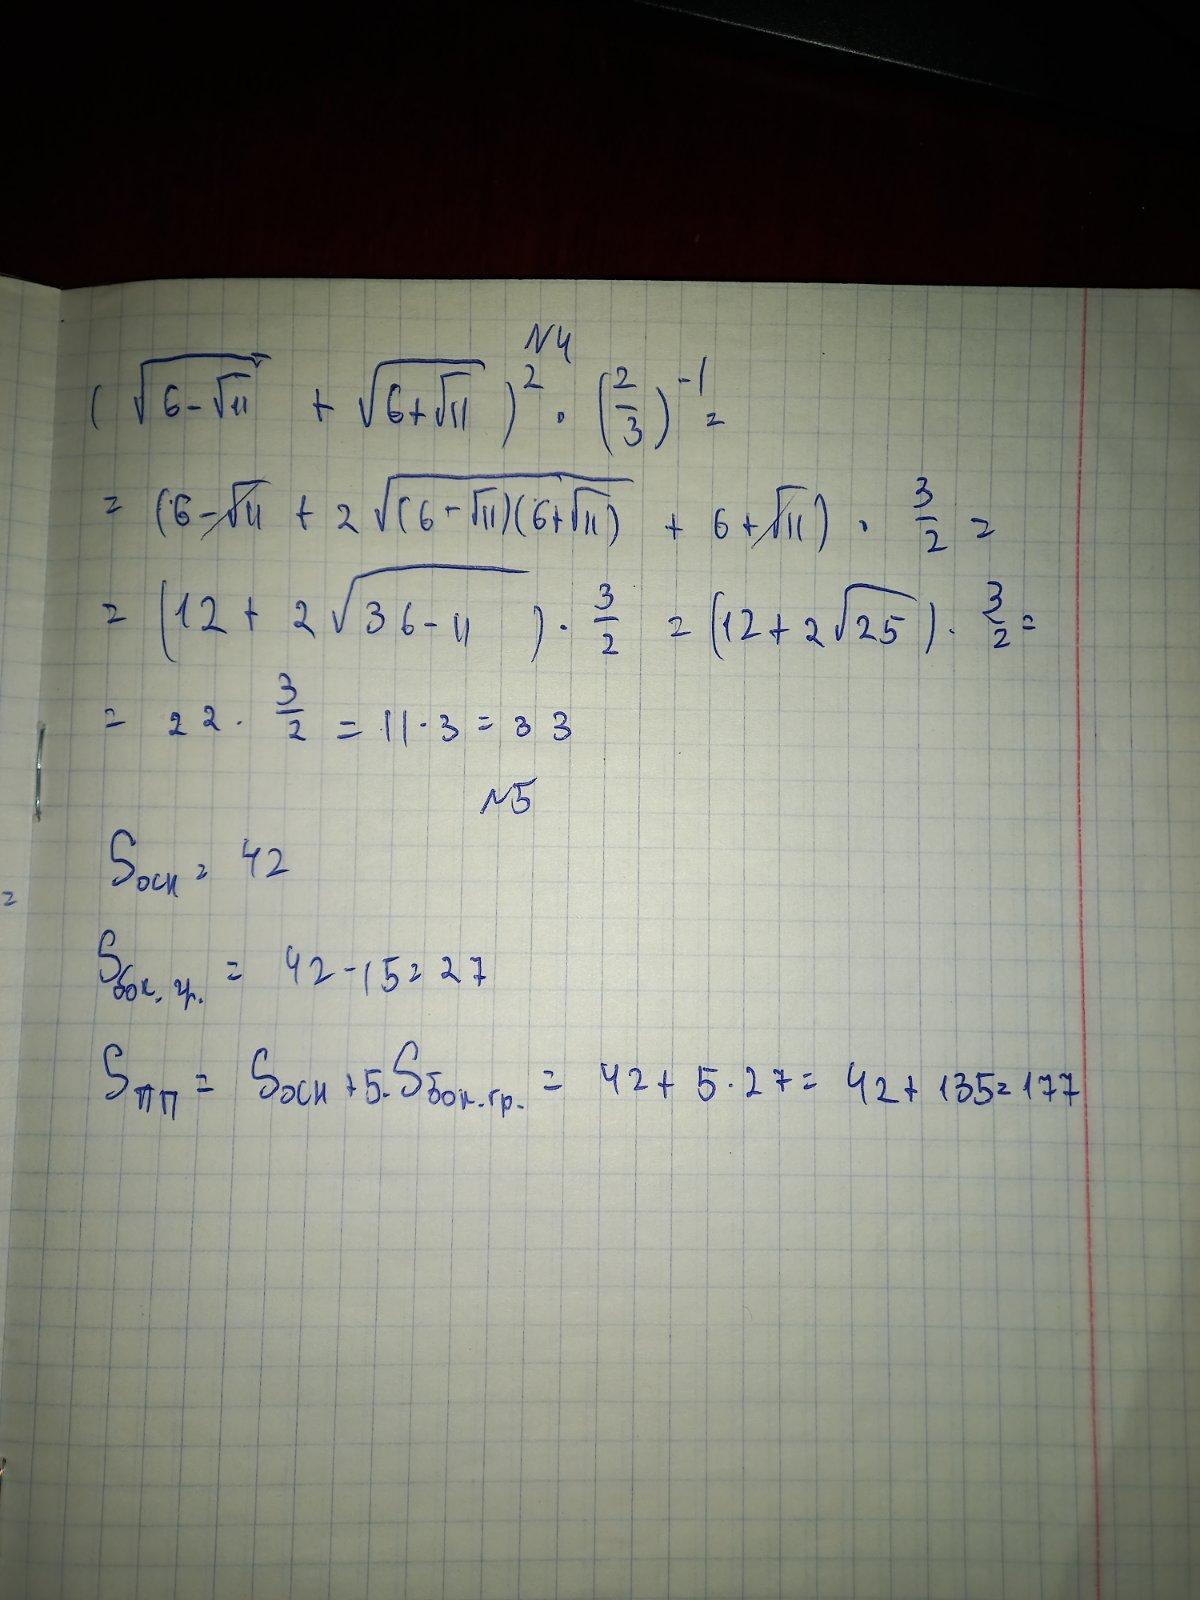 N4
(√(6-√11) + √(6+√11))² · (2/3)⁻¹ =
= (6-√11 + 2√((6-√11)(6+√11)) + 6+√11) · 3/2 =
= (12 + 2√(36-11)) · 3/2 = (12+2√25) · 3/2 =
= 22 · 3/2 = 11·3 = 33
N5
Sосн = 42
=
Sбок. гр. = 42-15=27
Sпп = Sосн +5·Sбок.гр. = 42+5·27= 42+135=177